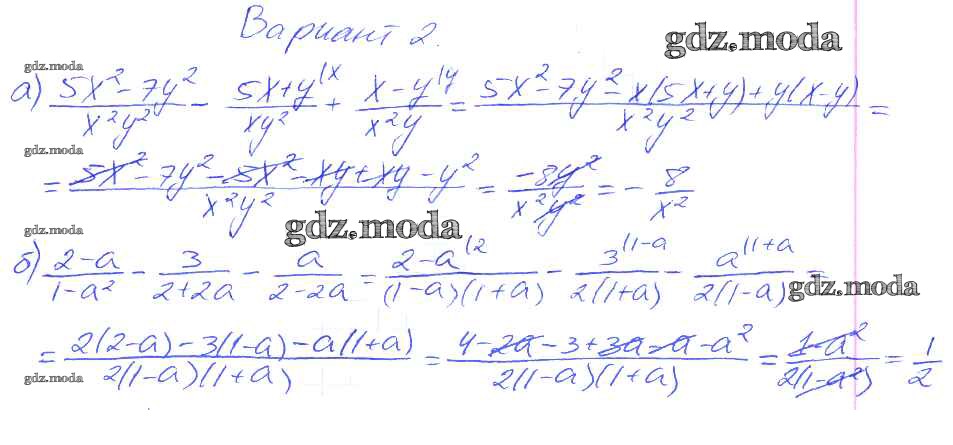 Вариант 2.
gdz.moda
gdz.moda
а) (5x² - 7y²)/(x²y²) - (5x+y)/(xy²) ⁽ˣ + (x-y)/(x²y) ⁽ʸ = (5x² - 7y² - x(5x+y) + y(x-y))/(x²y²) =
gdz.moda
= (5x² - 7y² - 5x² - xy + xy - y²)/(x²y²) = (-8y²)/(x²y²) = - 8/x²
gdz.moda
gdz.moda
б) (2-a)/(1-a²) - 3/(2+2a) - a/(2-2a) = (2-a)/((1-a)(1+a)) ⁽² - 3/(2(1+a)) ⁽¹⁻ᵃ - a/(2(1-a)) ⁽¹⁺ᵃ =
gdz.moda
= (2(2-a) - 3(1-a) - a(1+a))/(2(1-a)(1+a)) = (4 - 2a - 3 + 3a - a - a²)/(2(1-a)(1+a)) = (1-a²)/(2(1-a²)) = 1/2
gdz.moda